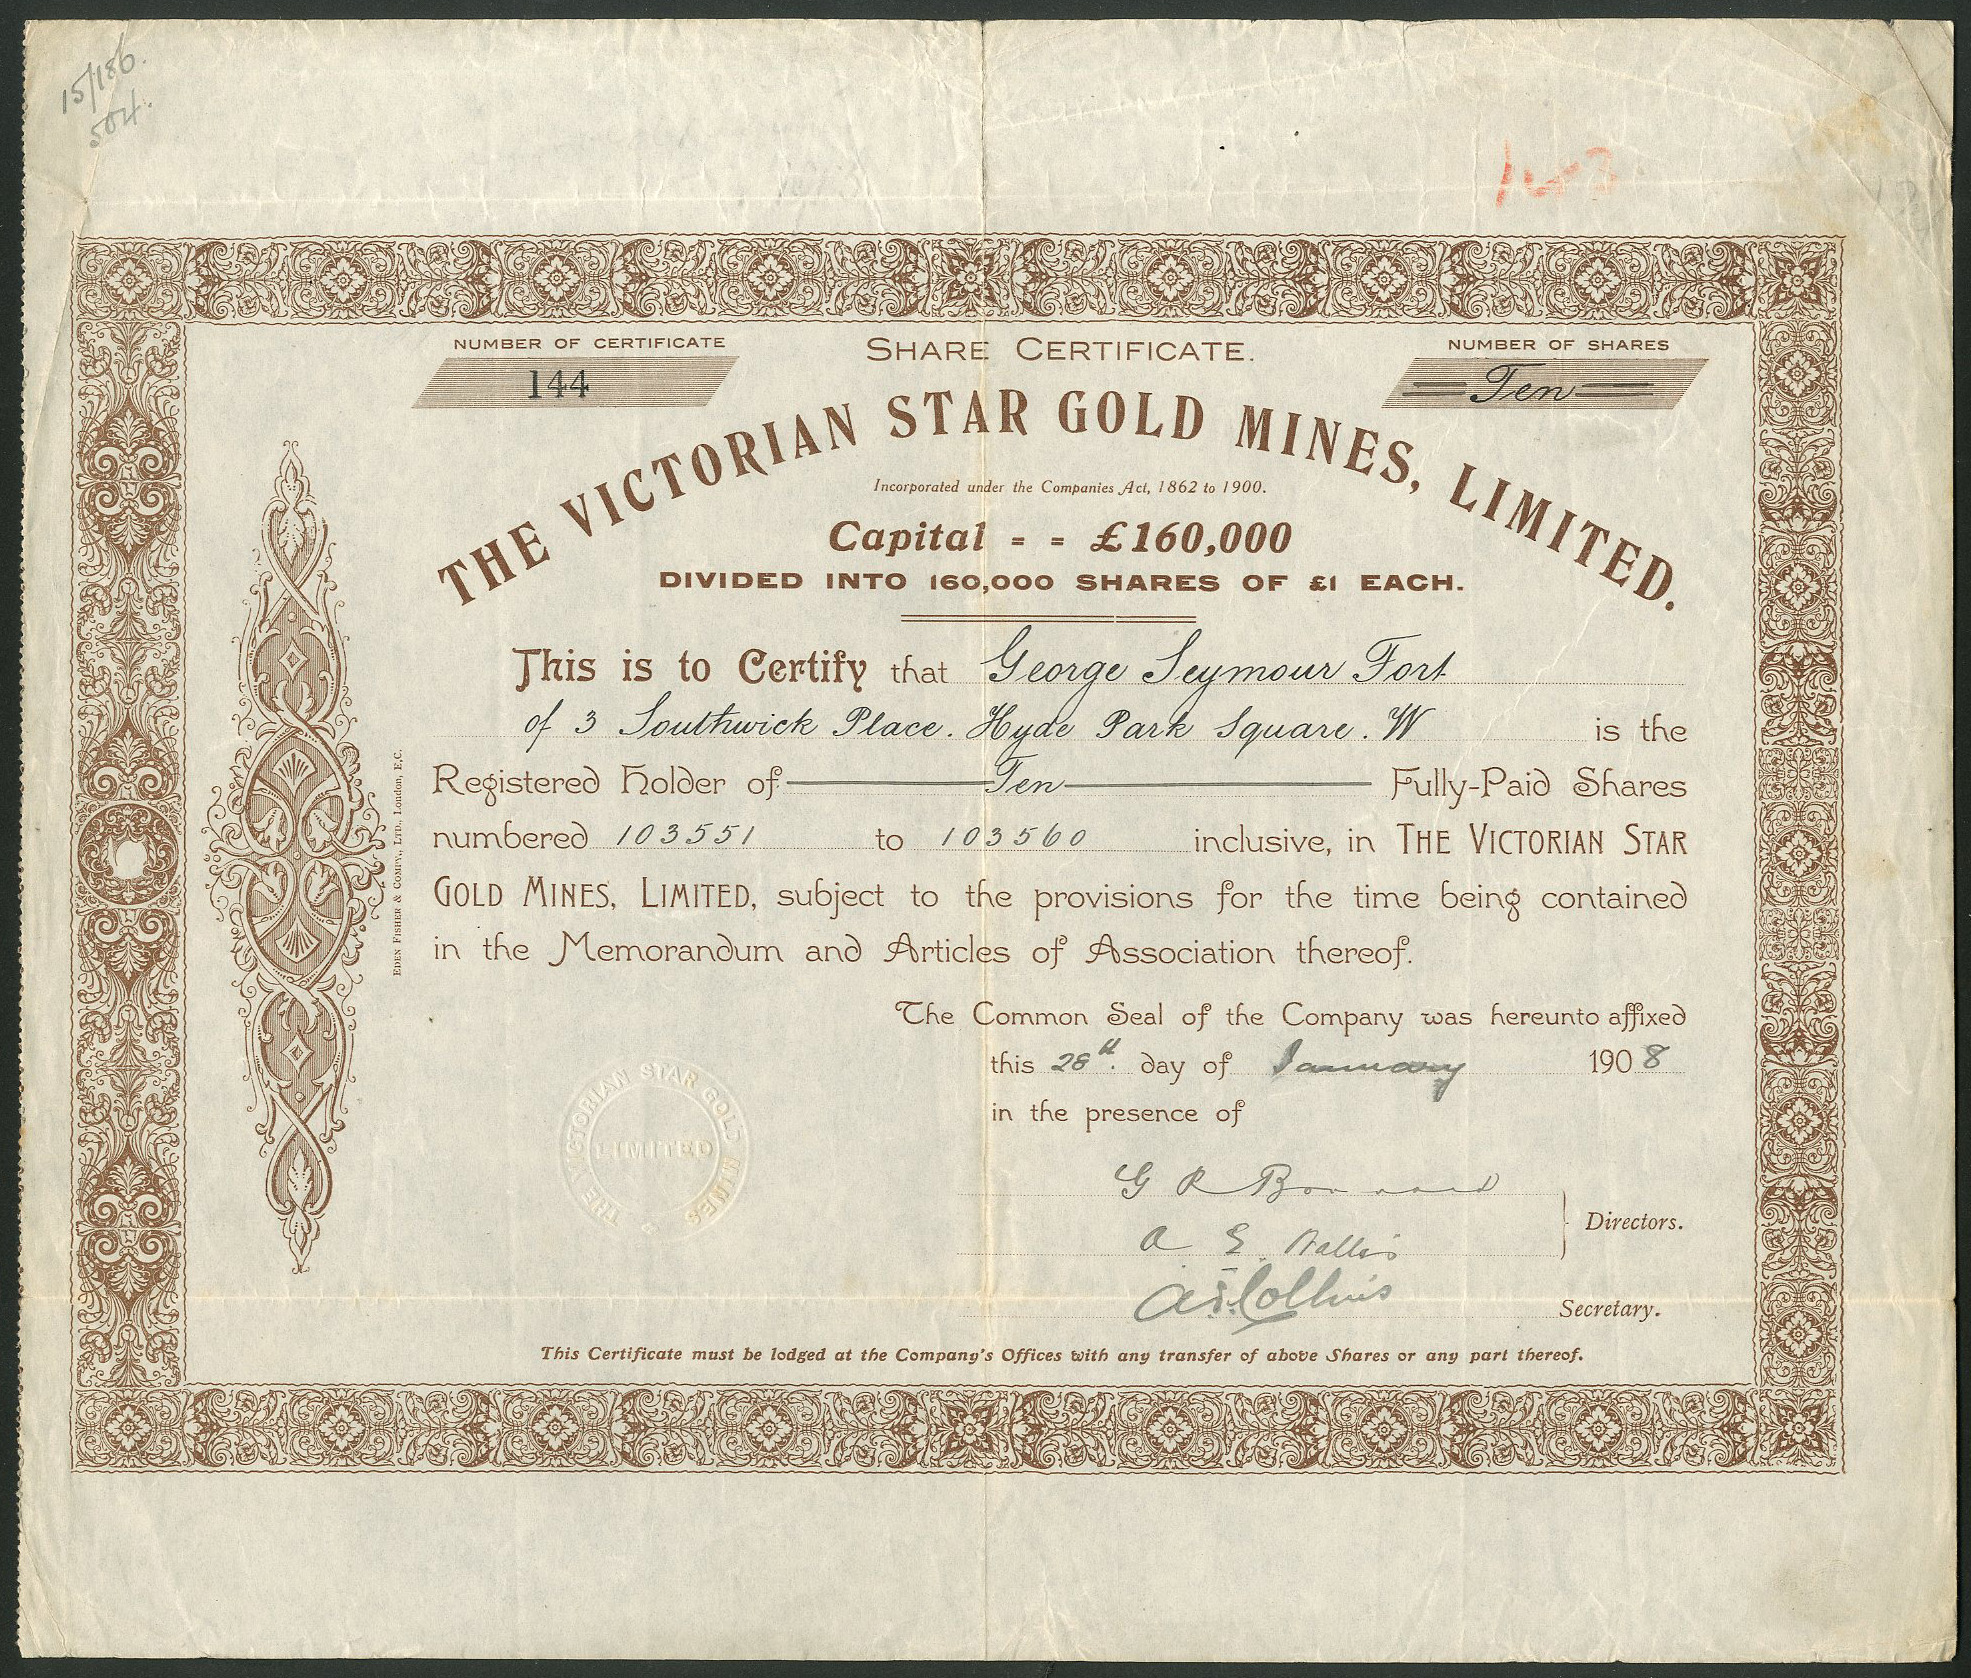 15/186.
504.
NUMBER OF CERTIFICATE
144
SHARE CERTIFICATE.
NUMBER OF SHARES
Ten
THE VICTORIAN STAR GOLD MINES, LIMITED.
Incorporated under the Companies Act, 1862 to 1900.
Capital = = £160,000
DIVIDED INTO 160,000 SHARES OF £1 EACH.
This is to Certify that George Seymour Fort
of 3 Southwick Place. Hyde Park Square. W is the
Registered Holder of Ten Fully-Paid Shares
numbered 103551 to 103560 inclusive, in THE VICTORIAN STAR
GOLD MINES, LIMITED, subject to the provisions for the time being contained
in the Memorandum and Articles of Association thereof.
EDEN FISHER & COMPY., LTD., London, E.C.
The Common Seal of the Company was hereunto affixed
this 28th. day of January 1908
in the presence of
THE VICTORIAN STAR GOLD MINES
LIMITED
G R Bonnard
A E Wallis
Directors.
A. E. Collins
Secretary.
This Certificate must be lodged at the Company's Offices with any transfer of above Shares or any part thereof.